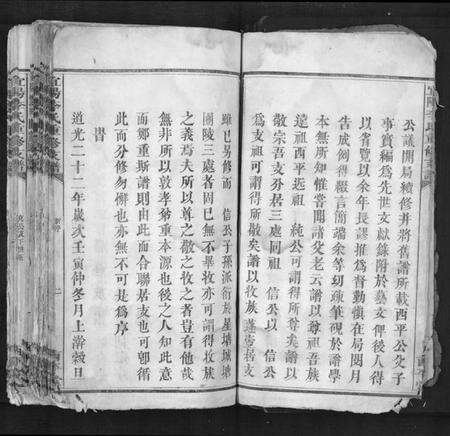 公議開局續修并將舊譜所載西平公父子
事實編為先世文獻錄附於藝文俾後人得
以省覽以余年長謬推為督勸在局閱月
告成例得贅言簡端余等幼疎筆硯於譜學
本無所知惟嘗聞諸父老云譜以尊祖吾族
遠祖西平近祖 純公可謂得所尊矣譜以
敬宗吾支分居三處同祖 信公以 信公
為支祖可謂得所敬矣譜以收族
雖已另修而 信公子孫派衍於星塘城塘
圍陵三處者固已無不畢收亦可謂得收族
之義焉夫所以尊之敬之收之者豈有他哉
無非所以敦孝弟重本源也後之人知此意
而鄭重斯譜則由此而合聯居支也可卽循
此而分修勿懈也亦無不可是為序
旹
道光二十二年歲次壬寅仲冬月上澣穀旦
宜陽李氏重修支譜